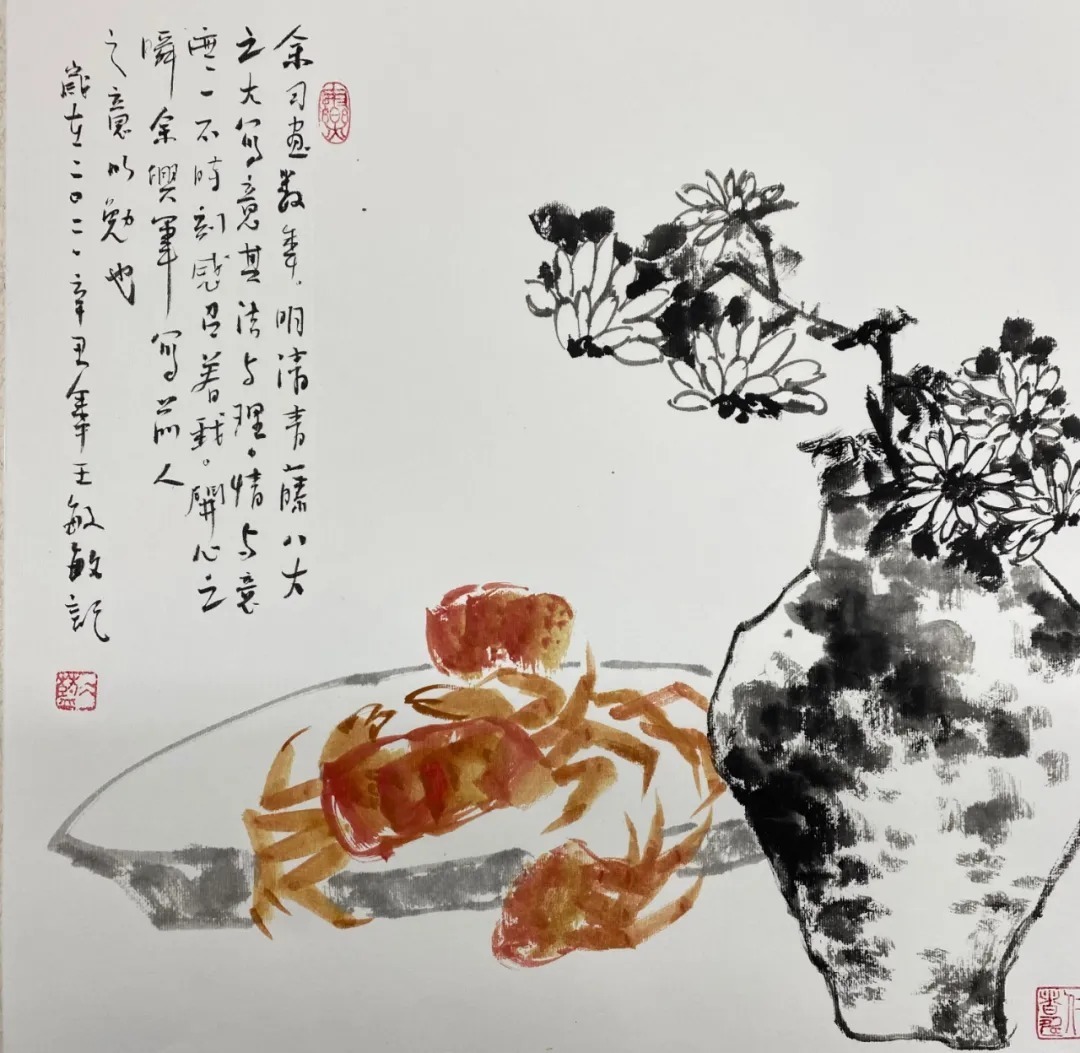 余习画数年，明清青藤八大
之大写意其法与理。情与意
无一不时刻感召着我。开心之
瞬余兴笔写前人
之意以勉也
岁在二〇二一辛丑年王敏敏记